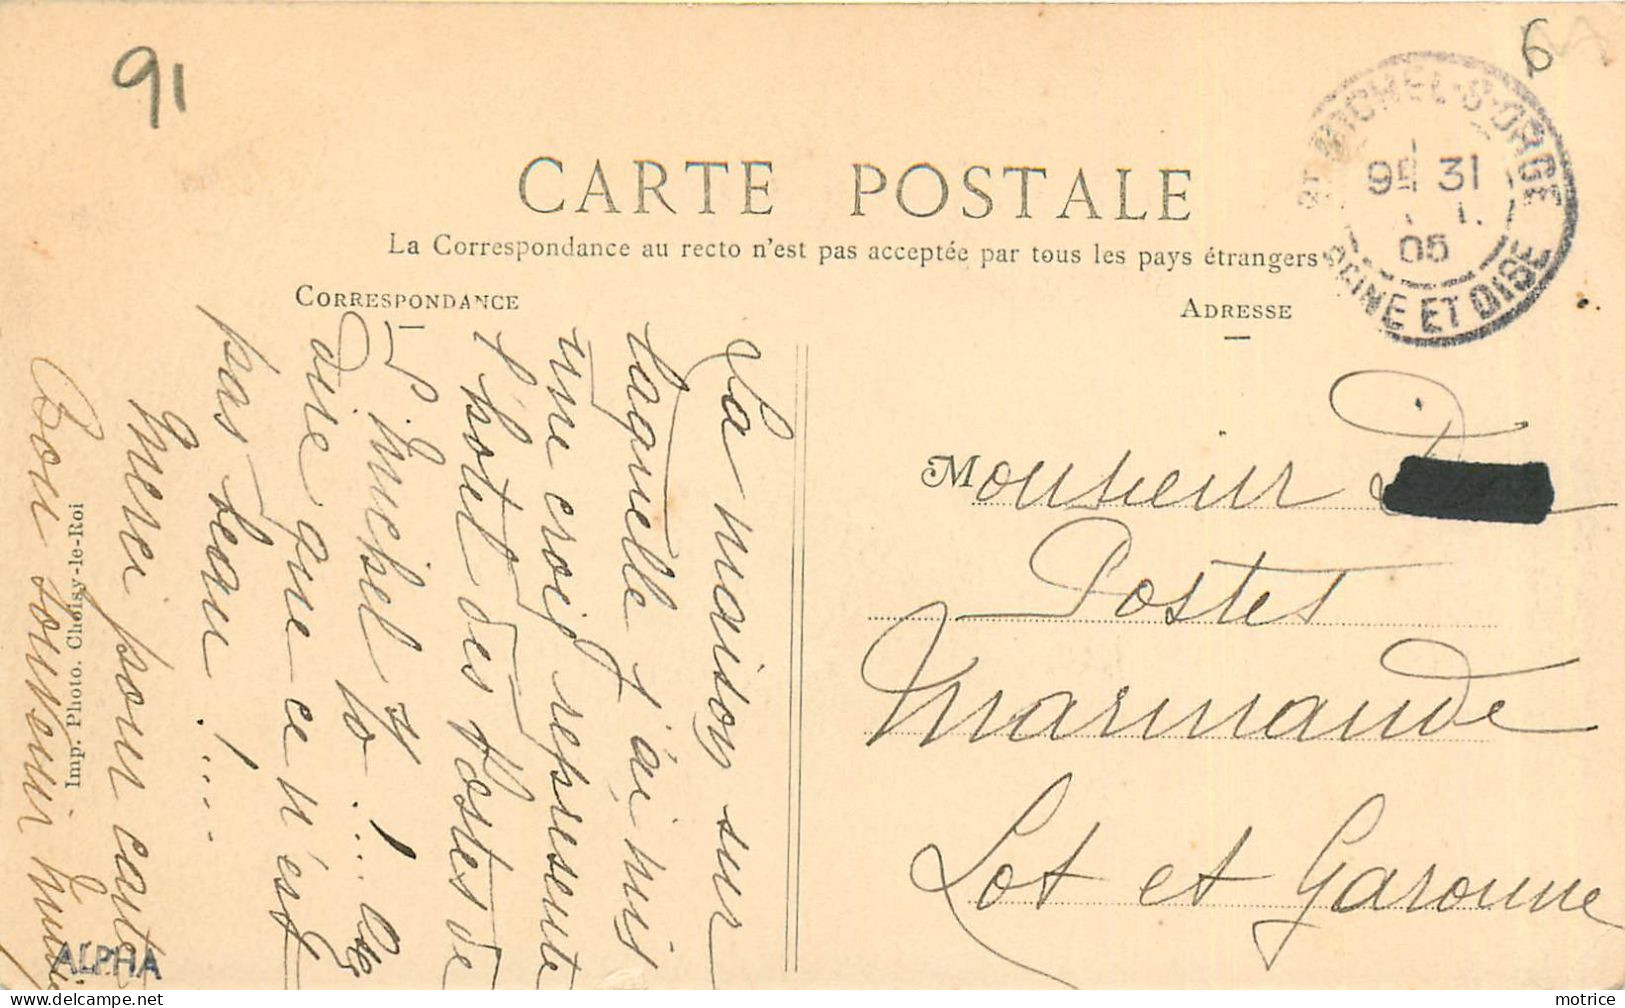 91
6
CARTE POSTALE
La Correspondance au recto n'est pas acceptée par tous les pays étrangers
CORRESPONDANCE
ADRESSE
ST MICHEL-S-ORGE
9E 31
1.
05
SEINE ET OISE
La maison sur
laquelle j'ai mis
une croix représente
l'hôtel des Postes de
St Michel s/o !...
dire que ce n'est
pas beau !....
Merci pour carte
Bon souvenir
Monsieur
Postes
Marmande
Lot et Garonne
Imp. Photo. Choisy-le-Roi
ALPHA
motrice